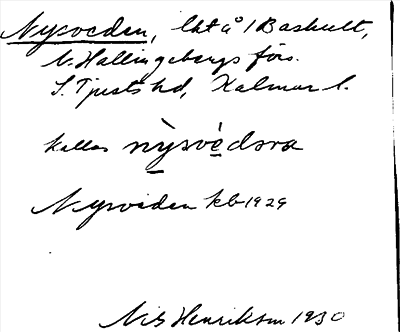 Nysveden, lht å 1 Baskult,
V. Hallingebergs förs.
S. Tjusts hd, Kalmar l.
kallas nỳsvèdsra
Nysveden kb 1929
Nils Henriksson 1930